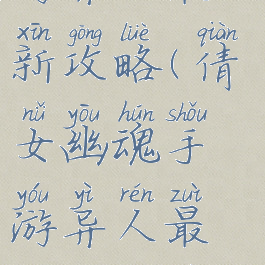 xīn gōng lüè qiàn
新攻略(倩
nǚ yōu hún shǒu
女幽魂手
yóu yì rén zuì
游异人最